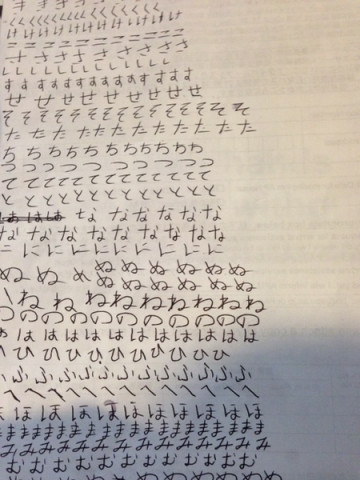 き き き き き
く く く く く く く く く く く
け け け け け け け け け け
こ こ こ こ こ こ こ こ
さ さ さ さ さ さ さ
し し し し し し し し し し し
す す す す す す す す す す す
せ せ せ せ せ せ せ せ
そ そ そ そ そ そ そ そ そ そ そ
た た た た た た た た た た
ち ち ち ち ち ち ち ち ち ち
つ つ つ つ つ つ つ つ
て て て て て て て て て て て
と と と と と と と と と と
な な な な な な
な な な な な な な な
に に に に に に に に
ぬ ぬ ぬ ぬ ぬ ぬ ぬ ぬ ぬ
ぬ ぬ ぬ ぬ ぬ ぬ
ね ね ね ね ね ね ね ね
の の の の の の の の の の
は は は は は は は は は は は
ひ ひ ひ ひ ひ ひ ひ ひ ひ
ふ ふ ふ ふ ふ ふ ふ ふ ふ ふ ふ
へ へ へ へ へ へ へ へ へ
ほ ほ ほ ほ ほ ほ ほ ほ ほ ほ ほ
ま ま ま ま ま ま ま ま ま ま ま ま
み み み み み み み み み み み
む む む む む む む む む む
め め め め め め め